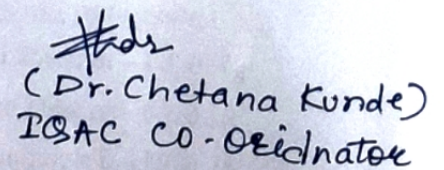 (Dr. Chetana Kunde)
IQAC CO-Oridnator